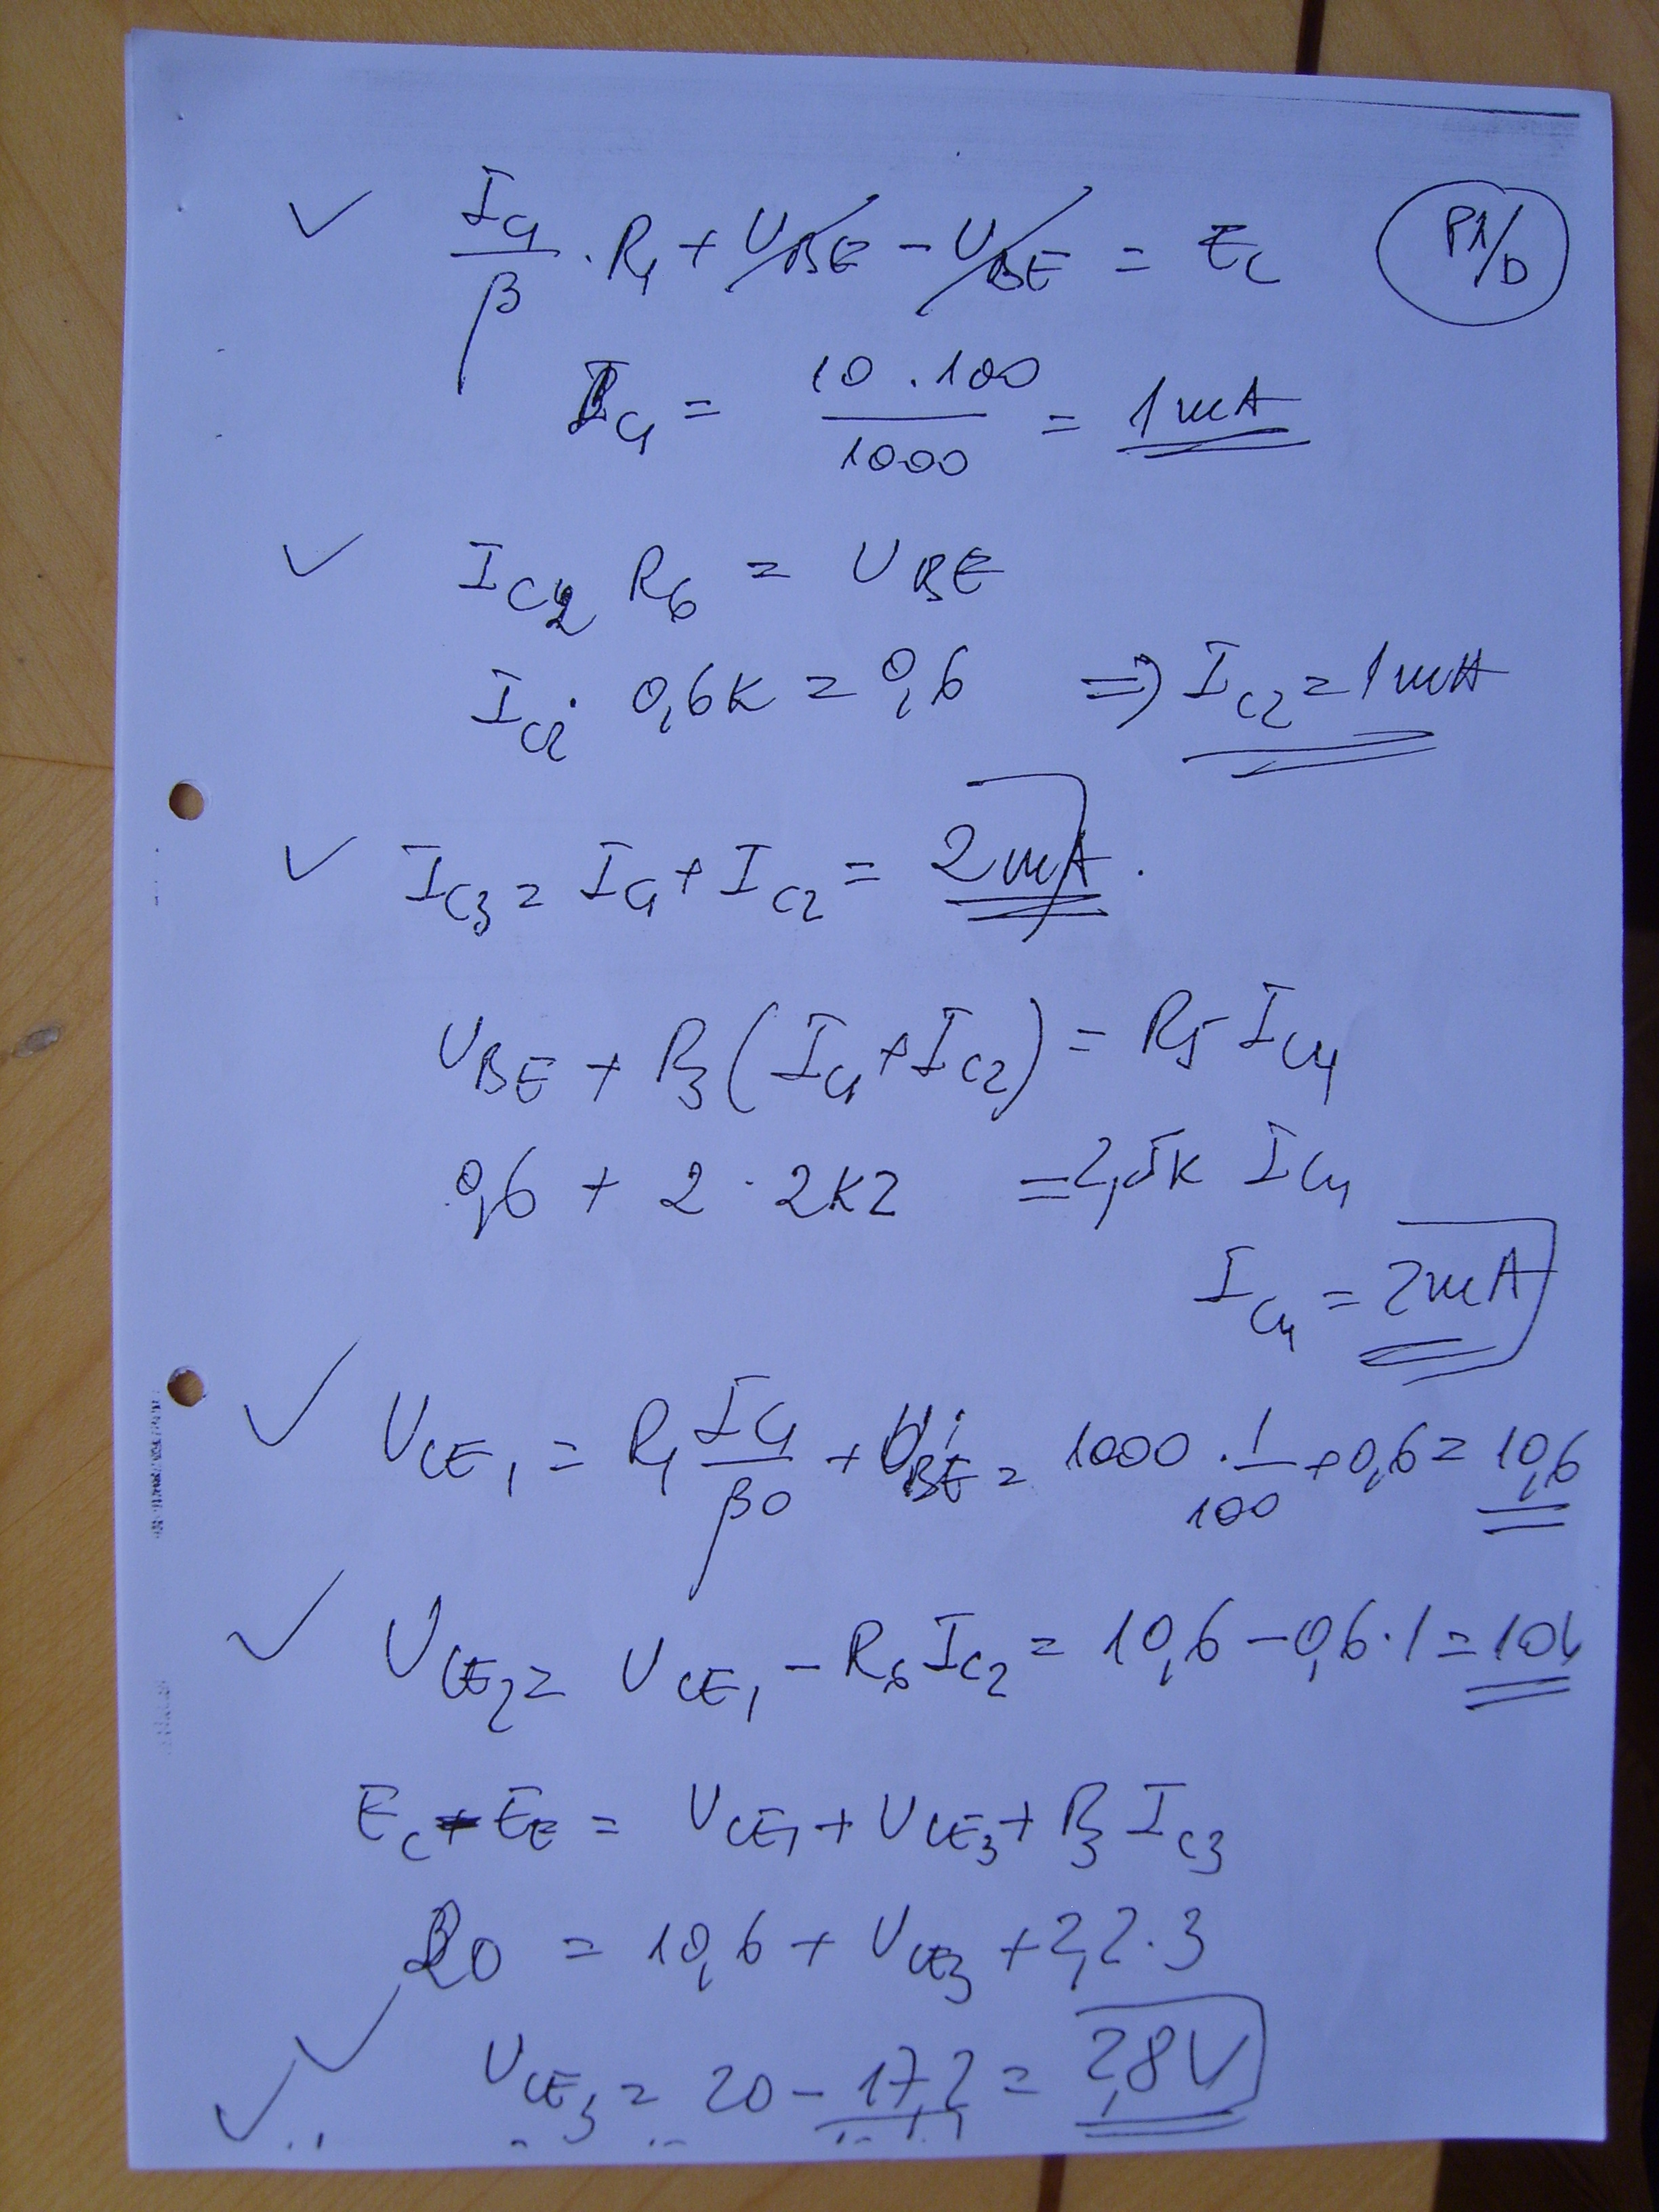 I_C1/β · R1 + U_BE − U_BE = E_C
P1/D
I_C1 = 10 . 100 / 1000 = 1 mA
I_C2 R6 = U_BE
I_C2 · 0,6K = 0,6 => I_C2 = 1 mA
I_C3 = I_C1 + I_C2 = 2 mA.
U_BE + R3 (I_C1 + I_C2) = R5 I_C4
0,6 + 2 · 2K2 = 2,5K I_C4
I_C4 = 2 mA
U_CE1 = R1 I_C1/β0 + U_BE = 1000 · 1/100 + 0,6 = 10,6
U_CE2 = U_CE1 − R6 I_C2 = 10,6 − 0,6 · 1 = 10V
E_C + E_E = U_CE1 + U_CE3 + R3 I_C3
20 = 10,6 + U_CE3 + 2,2 · 3
U_CE3 = 20 − 17,2 = 2,8V